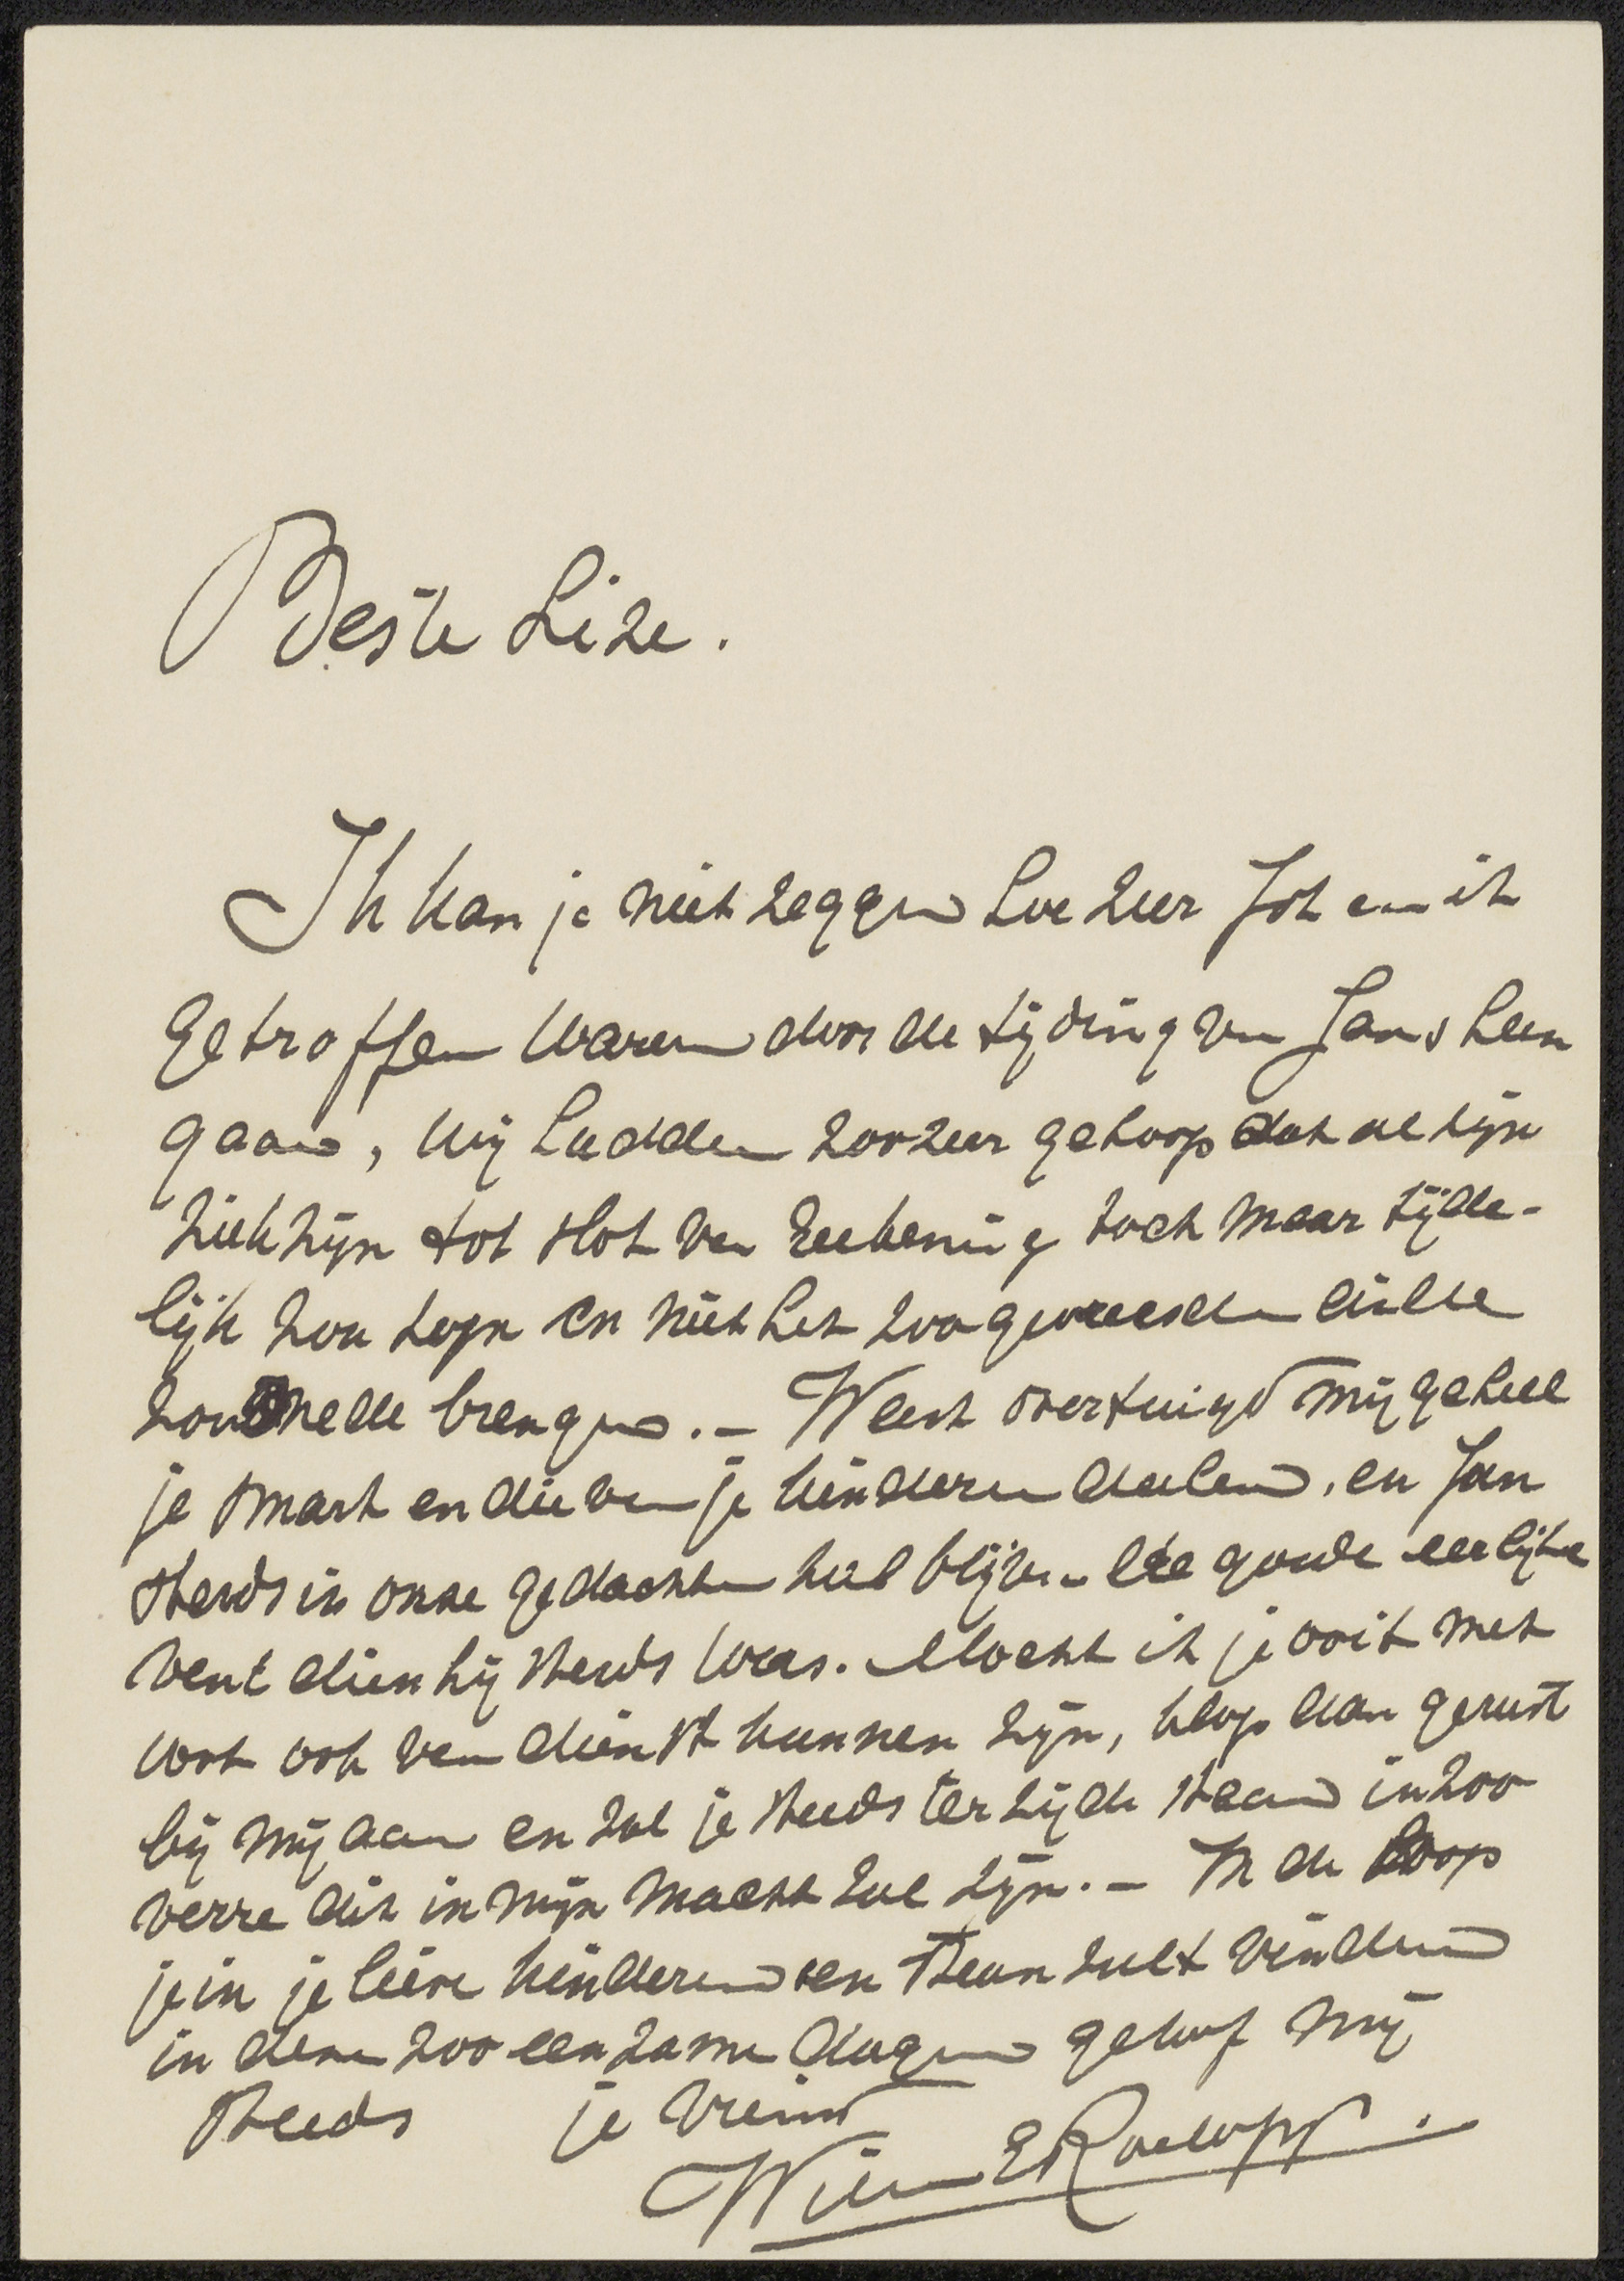 Beste Lize.
Ik kan je niet zeggen hoe zeer Joh en ik
getroffen waren door de tijding van Jans heen
gaan, wij hadden zoo zeer gehoop dat al zijn
ziek zijn tot slot van Reekening toch maar tijde-
lijk zou zijn en niet het zoo gevreesde einde
zou mede brengen. – Weest overtuigd mij geheel
je smart en die van je kinderen deelen, en Jan
steeds in onze gedachten zal blijven de goede eerlijke
vent dien hij steeds was. Mocht ik je ooit met
wat ook van dienst kunnen zijn, klop dan gerust
bij mij aan en zal je steeds ter zijde staan in zoo
verre dit in mijn macht zal zijn. – In de hoop
je in je lieve kinderen een steun zult vinden
in deze zoo eenzame dagen geloof mij
steeds je vriend
Willem E Roelofs.